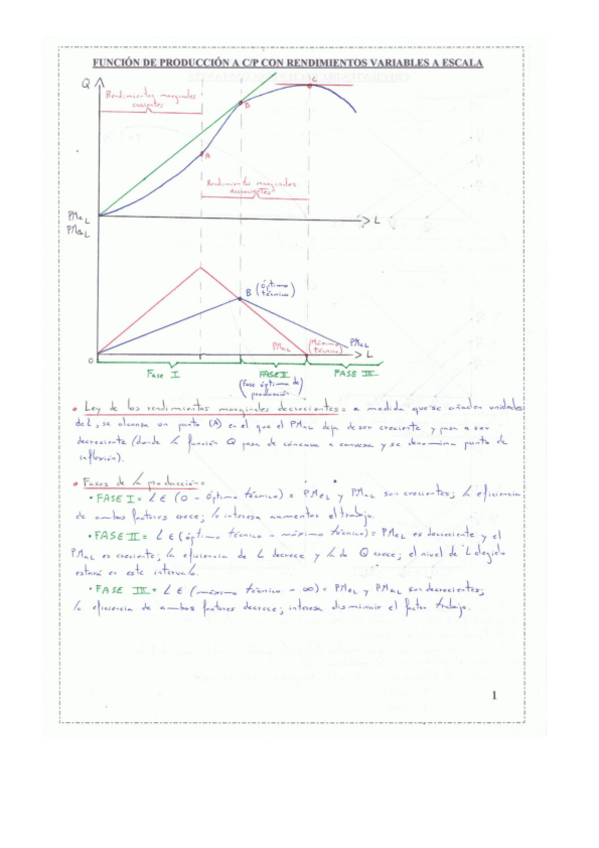 FUNCIÓN DE PRODUCCIÓN A C/P CON RENDIMIENTOS VARIABLES A ESCALA
Q
C
Rendimientos marginales
crecientes
B
A
Rendimientos marginales
decrecientes
PMeL
PMaL
L
B (óptimo
técnico)
PMaL
(Máximo
técnico)
PMeL
L
0
FASE I
FASE II
FASE III
(Fase óptima de
producción)
• Ley de los rendimientos marginales decrecientes = a medida que se añaden unidades
de L, se alcanza un punto (A) en el que el PMaL deja de ser creciente y pasa a ser
decreciente (donde la función Q pasa de cóncava a convexa y se denomina punto de
inflexión).
• Fases de la producción =
• FASE I = L ∈ (0 - óptimo técnico) = PMeL y PMaL son crecientes; la eficiencia
de ambos factores crece; lo interesa aumentar el trabajo.
• FASE II = L ∈ (óptimo técnico - máximo técnico) = PMeL es decreciente y el
PMaL es creciente; la eficiencia de L decrece y la de Q crece; el nivel de L elegido
estará en este intervalo.
• FASE III = L ∈ (máximo técnico - ∞) = PMeL y PMaL son decrecientes;
la eficiencia de ambos factores decrece; interesa disminuir el factor trabajo.
1